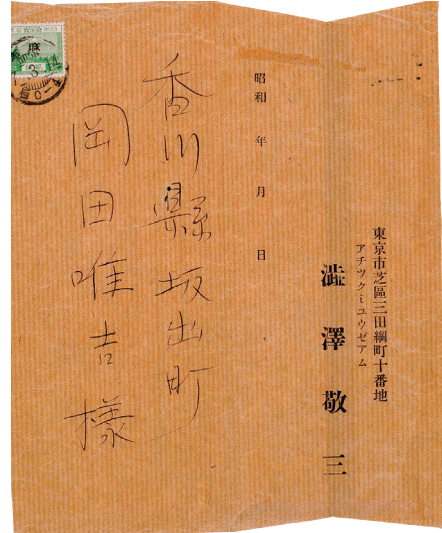 東京市芝區三田綱町十番地
アチツクミユウゼアム
澁澤敬三
昭和 年 月 日
香川縣坂出町
岡田唯吉様